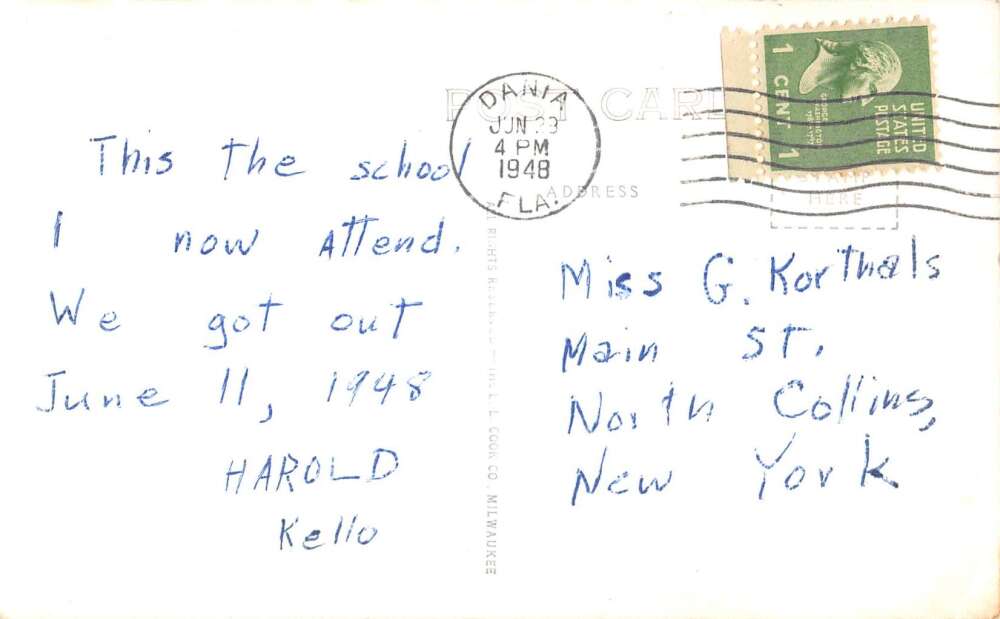 This the school
I now attend.
We got out
June 11, 1948
HAROLD
Kello
POST CARD
ADDRESS
DANIA
JUN
4 PM
1948
FLA.
UNITED
STATES
POSTAGE
1 CENT 1
HERE
Miss G. Korthals
Main St.
North Collins,
New York
L. L. COOK CO. MILWAUKEE